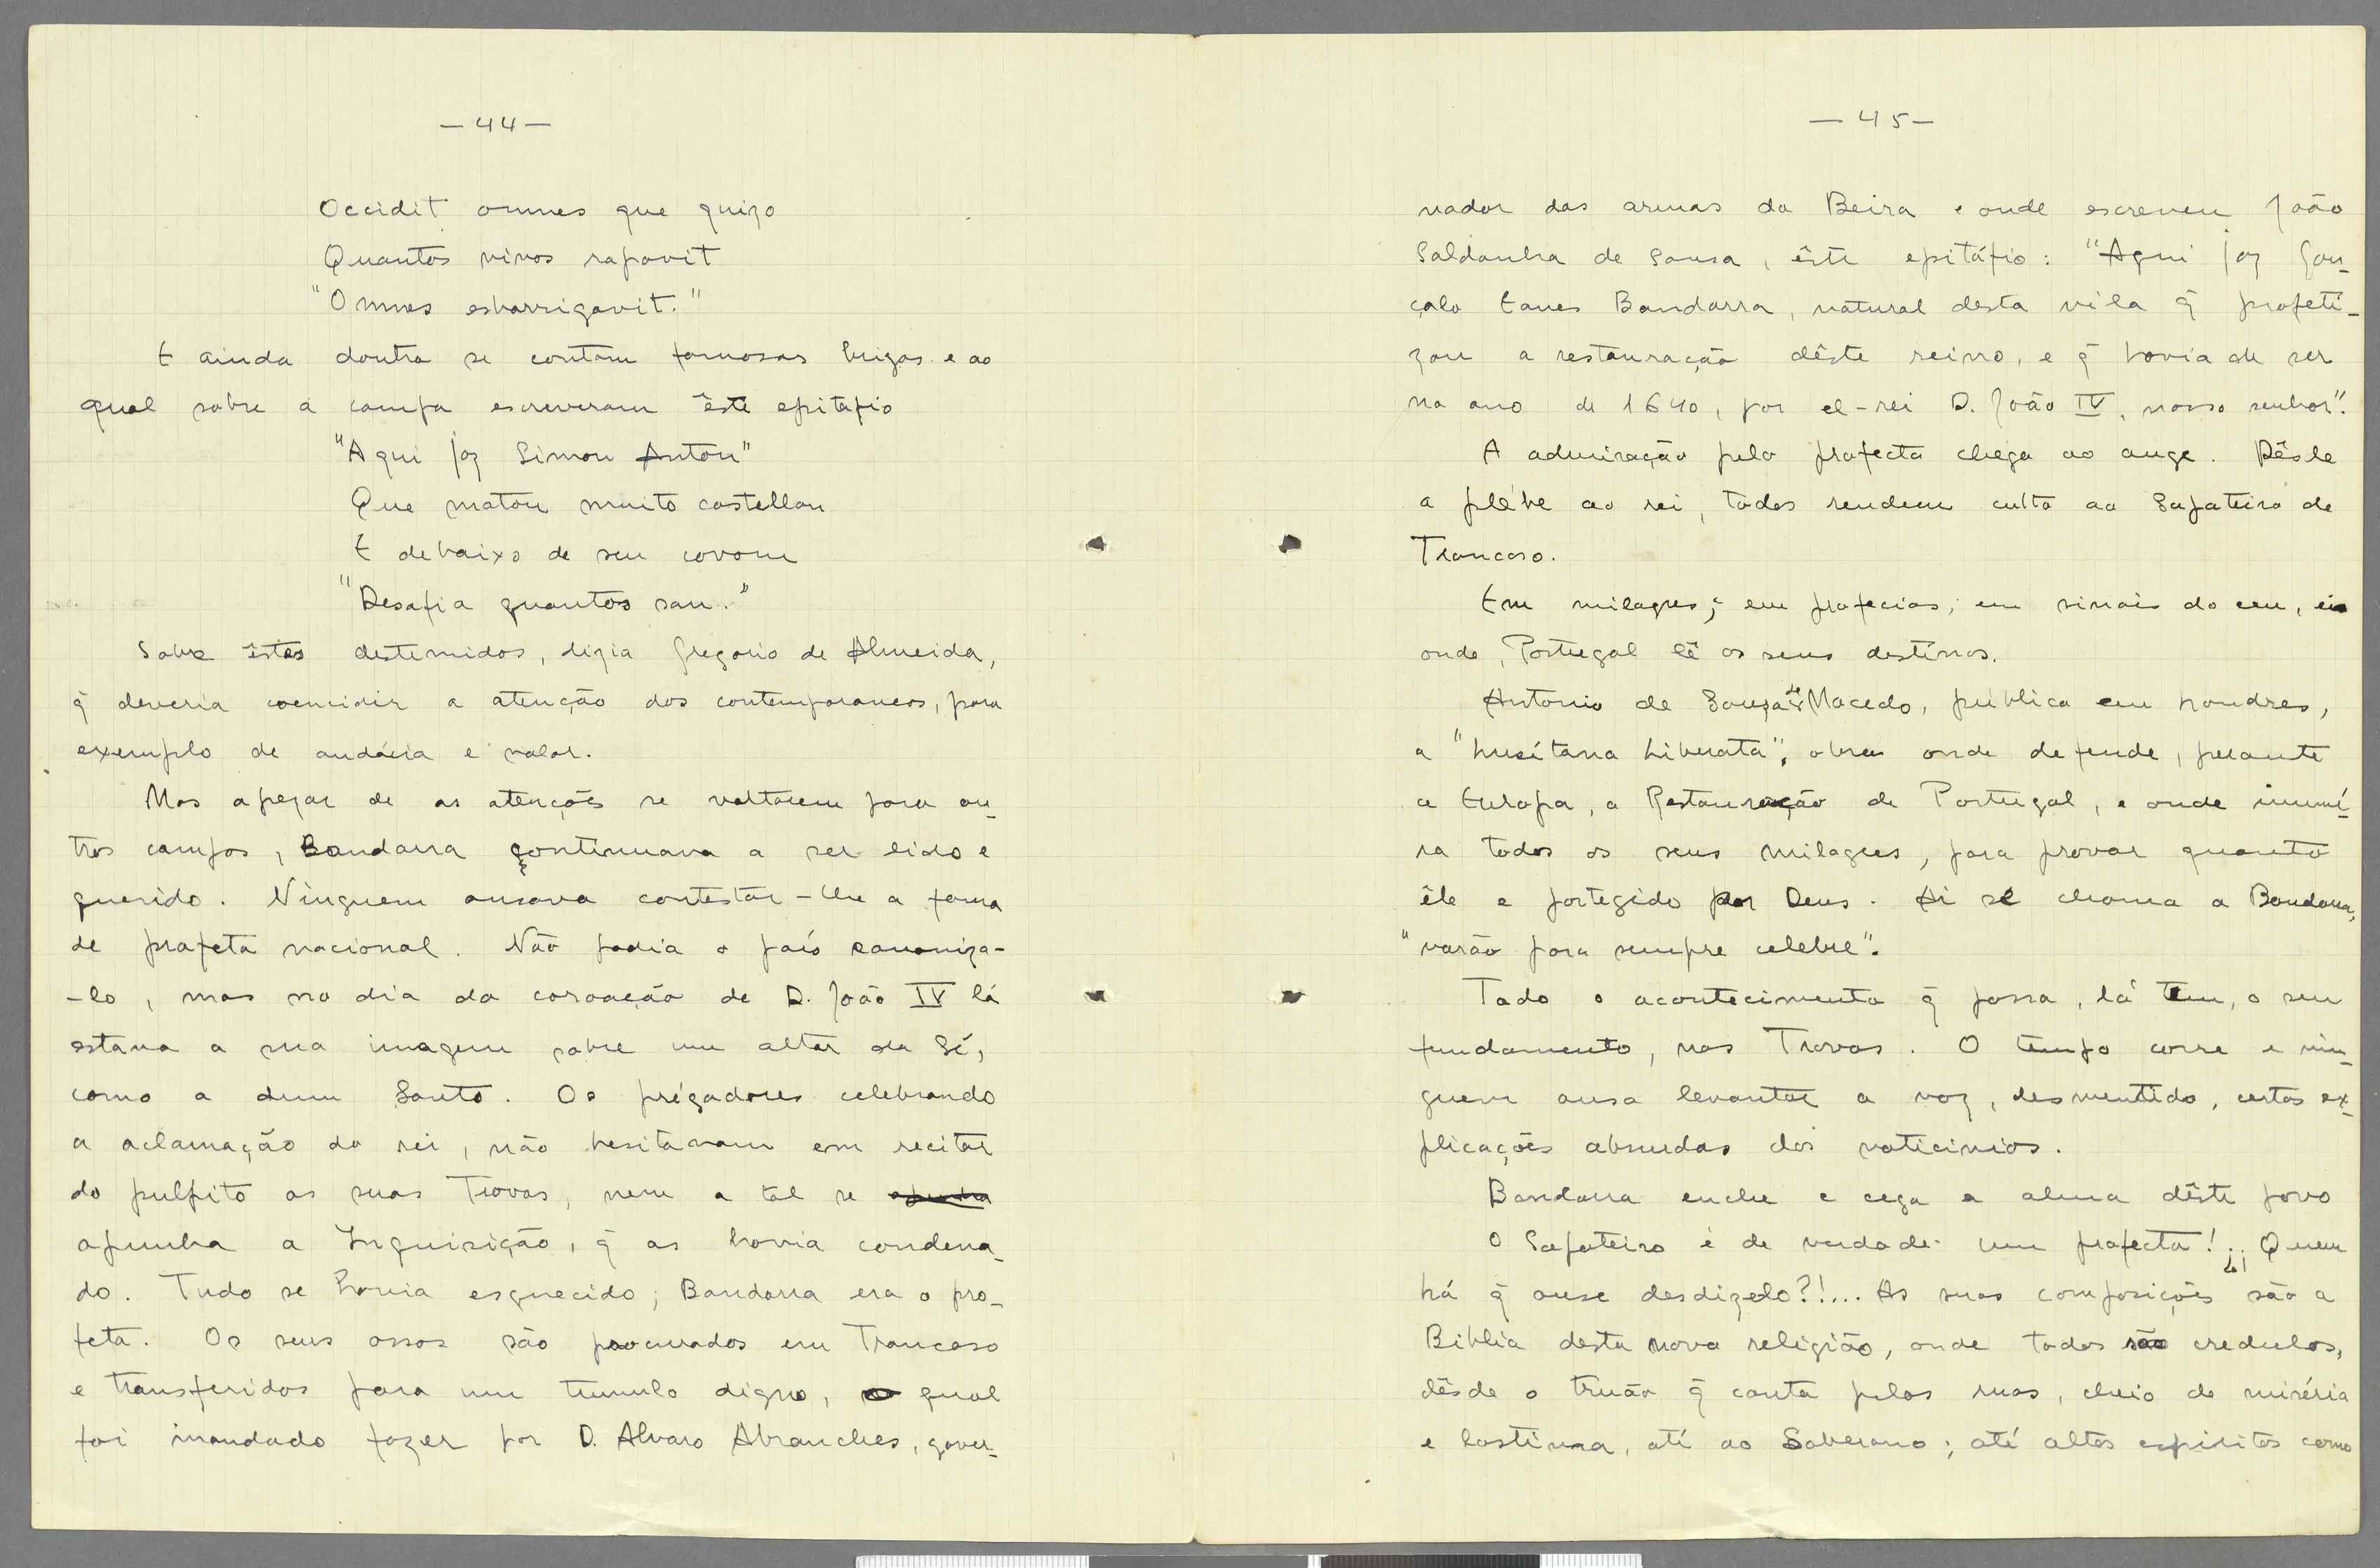 — 44 —
Occidit omnes que quizo
Quantos vivos rapavit
"Omnes esbarrigavit."
E ainda doutra se contam famosas brigas e ao
qual sobre a campa escreveram êste epitafio
"Aqui jaz Simon Anton"
Que matou muito castellan
E debaixo de seu covom
"Desafia quantos san."
Sobre êstes destemidos, dizia Gregorio de Almeida,
q̃ deveria coencidir a atenção dos contemporaneos, para
exemplo de audácia e valor.
Mas apezar de as atenções se voltarem para ou-
tros campos, Bandarra continuava a ser lido e
querido. Ninguem ousava contestar-lhe a fama
de profeta nacional. Não podia o país canoniza-
-lo, mas no dia da coroação de D. João IV lá
estava a sua imagem sobre um altar da Sé,
como a dum Santo. Os prégadores celebrando
a aclamação do rei, não hesitavam em recitar
do pulpito as suas Trovas, nem a tal se opunha
opunha a Inquisição, q̃ as havia condena-
do. Tudo se havia esquecido; Bandarra era o pro-
feta. Os seus ossos são procurados em Trancoso
e transferidos para um tumulo digno, o qual
foi mandado fazer por D. Alvaro Abranches, gover-
— 45 —
nador das armas da Beira e onde escreveu João
Saldanha de Sousa, êste epitáfio: "Aqui jaz Gon-
çalo Eanes Bandarra, natural desta vila q̃ profeti-
zou a restauração dêste reino, e q̃ havia de ser
no ano de 1640, por el-rei D. João IV, nosso senhor".
A admiração pelo profecta chega ao auge. Dêsde
a plébe ao rei, todos rendem culto ao Sapateiro de
Trancoso.
Em milagres; em profecias; em sinais do ceu, eis
onde, Portugal lê os seus destinos.
Antonio de Souza de Macedo, pública em Londres,
a "Lusitana Liberata", obra onde defende, perante
a Europa, a Restauração de Portugal, e onde inumé-
ra todos os seus milagres, para provar quanto
êle e portegido por Deus. Ai se chama a Bandarra,
"varão para sempre celebre".
Todo o acontecimento q̃ passa, lá tem, o seu
fundamento, nas Trovas. O tempo corre e nin-
guem ousa levantar a voz, desmentido, certas ex-
plicações absurdas dos vaticinios.
Bandarra enche e cega a alma dêste povo
O Sapateiro é de verdade um profecta!... Quem
há q̃ ouse desdizelo?!... As suas composições são a
Biblia desta nova religião, onde todos são credulos,
dêsde o truão q̃ canta pelas ruas, cheio de miséria
e lastima, até ao Soberano; até altos espiritos como